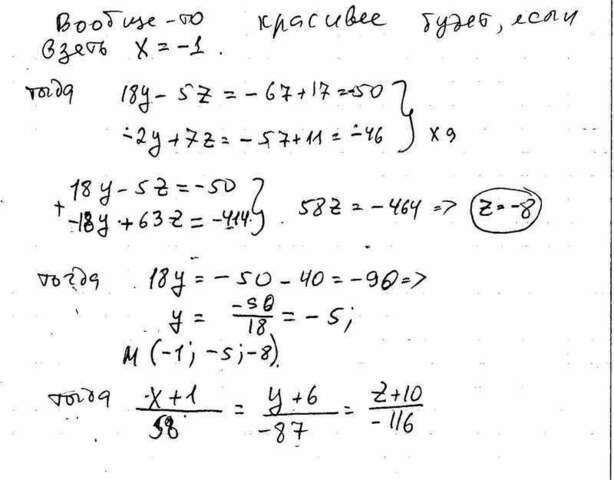 Вообще-то красивее будет, если
взеть x = -1.
тогда 18y - 5z = -67+17 = -50
-2y+7z = -57+11 = -46 } x 9
+ 18y - 5z = -50
-18y + 63z = -414 } . 58z = -464 => z = -8
тогда 18y = -50 - 40 = -90 =>
y = -90/18 = -5;
M (-1; -5; -8)
тогда x+1/58 = y+6/-87 = z+10/-116